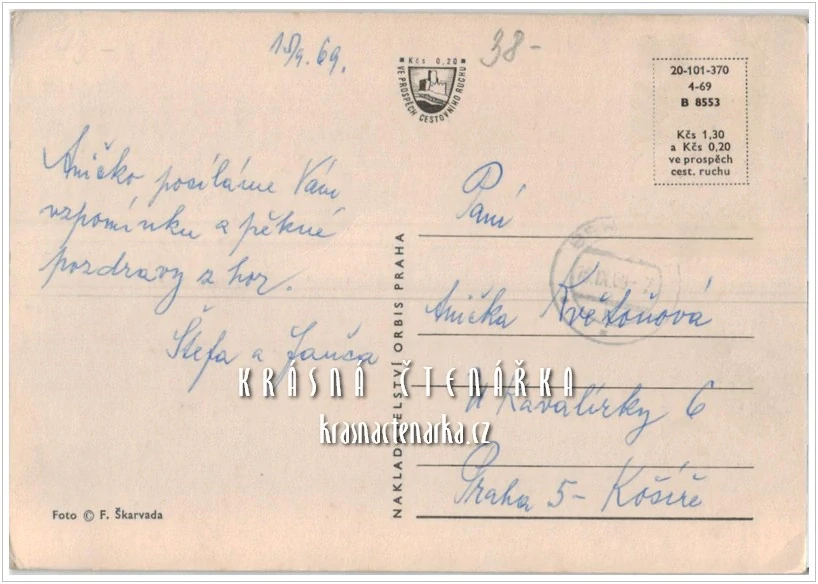 15/9. 69.
38-
Kčs 0,20
VE PROSPĚCH CESTOVNÍHO RUCHU
20-101-370
4-69
B 8553
Kčs 1,30
a Kčs 0,20
ve prospěch
cest. ruchu
Aničko posíláme Vám
vzpomínku a pěkné
pozdravy z hor.
Štefa a Janča
Paní
Anička Květoňová
U Kavalírky 6
Praha 5 - Košíře
NAKLADATELSTVÍ ORBIS PRAHA
KRÁSNÁ ČTENÁŘKA
krasnactenarka.cz
Foto © F. Škarvada